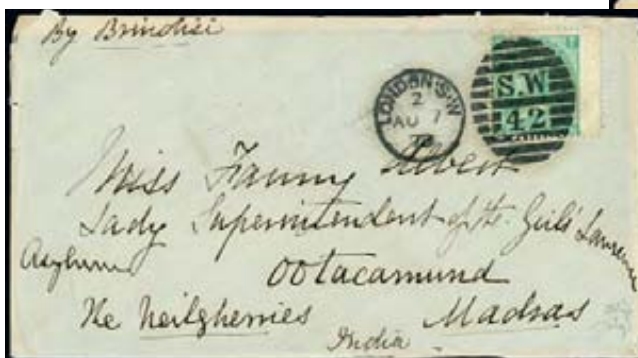 By Brindisi
LONDON·S.W
2
AU 7
S.W
42
Miss Fanny
Lady Superintendent of the Girls' Lawrence
Asylum
Ootacamund
The Neilgherries Madras
India